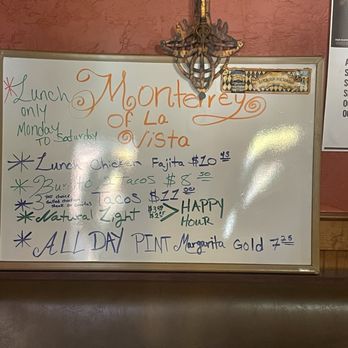 Lunch
only
Monday
To Saturday
Monterrey
Of La
Vista
Lunch Chicken Fajita $10
Burrito Tacos $8.50
3 Tacos $11
Natural Light > HAPPY
HOUR
ALL DAY PINT Margarita Gold 7.25